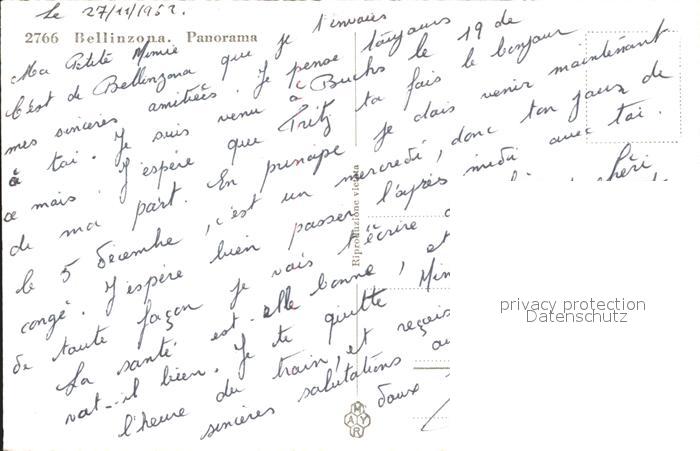 Le 27/11/1952.
2766 Bellinzona. Panorama
Ma Petite Mimie
C'est de Bellinzona que je t'envoies
mes sincères amitiées. Je pense toujours
à toi. Je suis venu à Buchs le 19 de
ce mois. J'espère que Fritz ta fais le bonjour
de ma part. En principe je dois venir maintenant
le 5 décembre, c'est un mercredi, donc ton jour de
congé. J'espère bien passer l'après midi avec toi.
de toute façon je vais t'écrire chéri
La santé est-elle bonne, et
vat-il bien. Je te quitte Mim
l'heure du train, et reçois
sincères salutations
doux
Riproduzione vietata
MAYR
privacy protection
Datenschutz